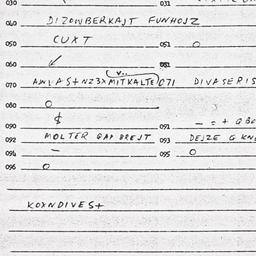 030 031
040 DIZOWBERKAJT FUNHOJZ
050 CUXT 051 O
060 ✓ 061
070 AWVAST+NZ3X(MITKALTE) 071 DIVASERIS
080 O
$
090 091 - = +
092 MOLTER GAP BREJT 093 DEJZE G
094 — 095 O
096 O
KOXNDIVES+